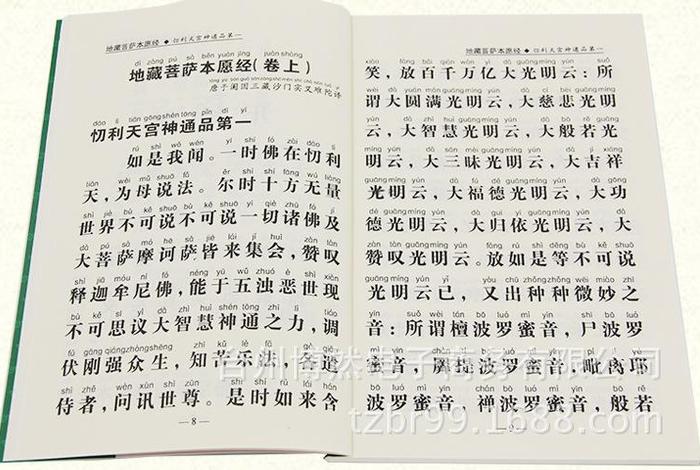 地藏菩萨本愿经 ◆ 忉利天宫神通品第一
dì zàng pú sà běn yuàn jīng juàn shàng
地藏菩萨本愿经(卷上)
唐于阗国三藏沙门实叉难陀译
dāo lì tiān gōng shén tōng pǐn dì yī
忉利天宫神通品第一
rú shì wǒ wén yì shí fó zài dāo lì
如是我闻。一时佛在忉利
tiān wèi mǔ shuō fǎ ěr shí shí fāng wú liàng
天,为母说法。尔时十方无量
shì jiè bù kě shuō bù kě shuō yí qiè zhū fó jí
世界不可说不可说一切诸佛及
dà pú sà mó hē sà jiē lái jí huì zàn tàn
大菩萨摩诃萨皆来集会,赞叹
shì jiā móu ní fó néng yú wǔ zhuó è shì xiàn
释迦牟尼佛,能于五浊恶世现
bù kě sī yì dà zhì huì shén tōng zhī lì tiáo
不可思议大智慧神通之力,调
fú gāng qiáng zhòng shēng zhī kǔ lè fǎ gè qiǎn
伏刚强众生,知苦乐法,各遣
shì zhě wèn xùn shì zūn shì shí rú lái hán
侍者,问讯世尊。是时如来含
— 8 —
地藏菩萨本愿经 ◆ 忉利天宫神通品第一
xiào fàng bǎi qiān wàn yì dà guāng míng yún suǒ
笑,放百千万亿大光明云:所
wèi dà yuán mǎn guāng míng yún dà cí bēi guāng míng
谓大圆满光明云,大慈悲光明
yún dà zhì huì guāng míng yún dà bō rě guāng
云,大智慧光明云,大般若光
míng yún dà sān mèi guāng míng yún dà jí xiáng
明云,大三昧光明云,大吉祥
guāng míng yún dà fú dé guāng míng yún dà gōng
光明云,大福德光明云,大功
dé guāng míng yún dà guī yī guāng míng yún dà
德光明云,大归依光明云,大
zàn tàn guāng míng yún fàng rú shì děng bù kě shuō
赞叹光明云。放如是等不可说
guāng míng yún yǐ yòu chū zhǒng zhǒng wēi miào zhī
光明云已,又出种种微妙之
yīn suǒ wèi tán bō luó mì yīn shī bō luó
音:所谓檀波罗蜜音,尸波罗
蜜音,羼提波罗蜜音,毗离耶
bō luó mì yīn chán bō luó mì yīn bō rě
波罗蜜音,禅波罗蜜音,般若
tzbr99.1688.com